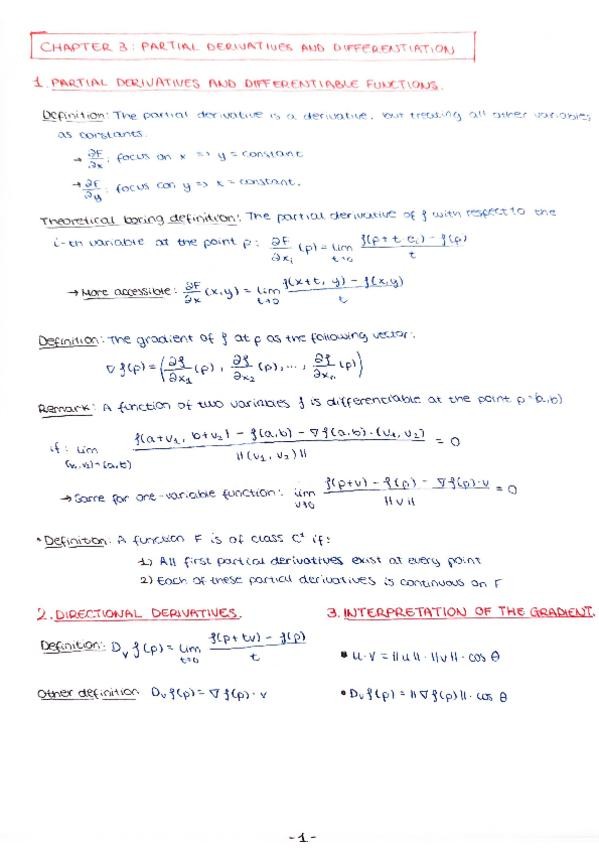 CHAPTER 3: PARTIAL DERIVATIVES AND DIFFERENTIATION
1. PARTIAL DERIVATIVES AND DIFFERENTIABLE FUNCTIONS.
Definition: The partial derivative is a derivative, but treating all other variables
as constants.
→ ∂F/∂x: focus on x => y = constant
→ ∂F/∂y: focus con y => x = constant.
Theoretical boring definition: The partial derivative of f with respect to the
i-th variable at the point p: ∂F/∂xᵢ (p) = lim t→0 (f(p + t eᵢ) - f(p))/t
→ More accessible: ∂F/∂x (x,y) = lim t→0 (f(x+t, y) - f(x,y))/t
Definition: The gradient of f at p as the following vector:
∇f(p) = (∂f/∂x₁ (p), ∂f/∂x₂ (p), ..., ∂f/∂xₙ (p))
Remark: A function of two variables f is differentiable at the point p=(a,b)
if: lim (x,v₂)→(a,b) (f(a+v₁, b+v₂) - f(a,b) - ∇f(a,b)·(v₁,v₂))/||(v₁,v₂)|| = 0
→ Same for one-variable function: lim v→0 (f(p+v) - f(p) - ∇f(p)·v)/||v|| = 0
• Definition: A function F is of class C¹ if:
1) All first partial derivatives exist at every point
2) Each of these partial derivatives is continuous on
2. DIRECTIONAL DERIVATIVES.
Definition: Dᵥ f(p) = lim t→0 (f(p+tv) - f(p))/t
Other definition Dᵥf(p) = ∇f(p)·v
3. INTERPRETATION OF THE GRADIENT.
• u·v = ||u||·||v||·cos θ
• Dᵥf(p) = ||∇f(p)||·cos θ
-1-